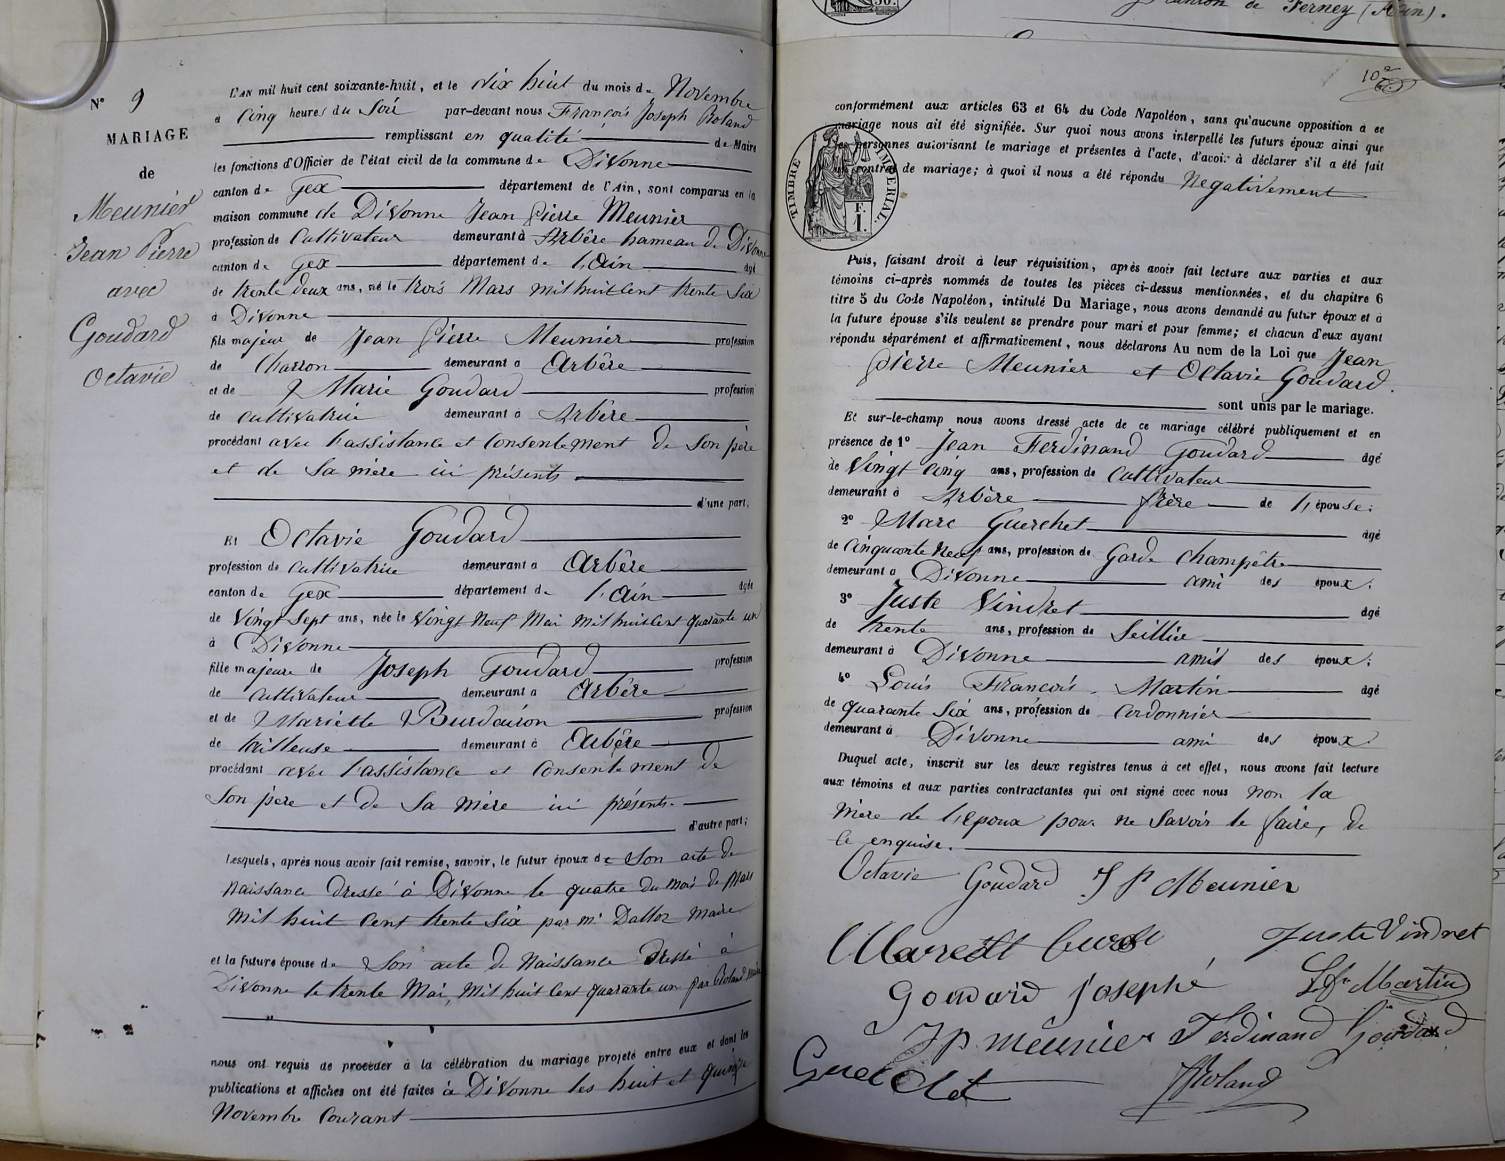 N° 9
MARIAGE
de
Meunier
Jean Pierre
avec
Goudard
Octavie
L'AN mil huit cent soixante-huit, et le dix huit du mois de Novembre
à Cinq heures du Soir par-devant nous François Joseph Roland
remplissant en qualité de Maire
les fonctions d'Officier de l'état civil de la commune de Divonne
canton de Gex département de l'Ain, sont comparus en la
maison commune de Divonne Jean Pierre Meunier
profession de Cultivateur demeurant à Arbère hameau de Divonne
canton de Gex département de l'Ain âgé
de trente deux ans, né le trois Mars mil huit Cent trente Six
à Divonne
fils majeur de Jean Pierre Meunier profession
de Charron demeurant à Arbère
et de Marie Goudard profession
de cultivatrice demeurant à Arbère
procédant avec l'assistance et Consentement de Son père
et de Sa mère ici présents
d'une part,
Et Octavie Goudard
profession de Cultivatrice demeurant à Arbère
canton de Gex département de l'Ain âgée
de Vingt Sept ans, née le Vingt Neuf Mai mil huit Cent quarante un
à Divonne
fille majeure de Joseph Goudard profession
de Cultivateur demeurant à Arbère
et de Mariette Burdairon profession
de tailleuse demeurant à Arbère
procédant avec l'assistance et Consentement de
Son père et de Sa mère ici présents.
d'autre part;
Lesquels, après nous avoir fait remise, savoir, le futur époux de Son acte de
Naissance dressé à Divonne le quatre du mois de Mars
Mil huit Cent trente Six par Mr Dalloz Maire
et la future épouse de Son acte de Naissance dressé à
Divonne le trente Mai Mil huit Cent quarante un par Roland Maire
nous ont requis de procéder à la célébration du mariage projeté entre eux et dont les
publications et affiches ont été faites à Divonne les huit et quinze
Novembre Courant
canton de Ferney (Ain).
102
conformément aux articles 63 et 64 du Code Napoléon, sans qu'aucune opposition à ce
mariage nous ait été signifiée. Sur quoi nous avons interpellé les futurs époux ainsi que
les personnes autorisant le mariage et présentes à l'acte, d'avoir à déclarer s'il a été fait
un contrat de mariage; à quoi il nous a été répondu Négativement
TIMBRE IMPERIAL.
F.
1.
Puis, faisant droit à leur réquisition, après avoir fait lecture aux parties et aux
témoins ci-après nommés de toutes les pièces ci-dessus mentionnées, et du chapitre 6
titre 5 du Code Napoléon, intitulé Du Mariage, nous avons demandé au futur époux et à
la future épouse s'ils veulent se prendre pour mari et pour femme; et chacun d'eux ayant
répondu séparément et affirmativement, nous déclarons Au nom de la Loi que Jean
Pierre Meunier et Octavie Goudard.
sont unis par le mariage.
Et sur-le-champ nous avons dressé acte de ce mariage célébré publiquement et en
présence de 1° Jean Ferdinand Goudard âgé
de Vingt Cinq ans, profession de Cultivateur
demeurant à Arbère frère de l'épouse;
2° Marc Guerchet âgé
de Cinquante Neuf ans, profession de Garde Champêtre
demeurant à Divonne ami des époux;
3° Juste Vindret âgé
de trente ans, profession de Sellier
demeurant à Divonne ami des époux;
4° Louis François Martin âgé
de quarante Six ans, profession de Cordonnier
demeurant à Divonne ami des époux.
Duquel acte, inscrit sur les deux registres tenus à cet effet, nous avons fait lecture
aux témoins et aux parties contractantes qui ont signé avec nous non la
mère de l'époux pour ne Savoir le faire, de
ce enquise.
Octavie Goudard J P Meunier
Juste Vindret
Goudard Josephe Ls fs Martin
J P meunier Ferdinand Goudard
Guerchet FJRoland